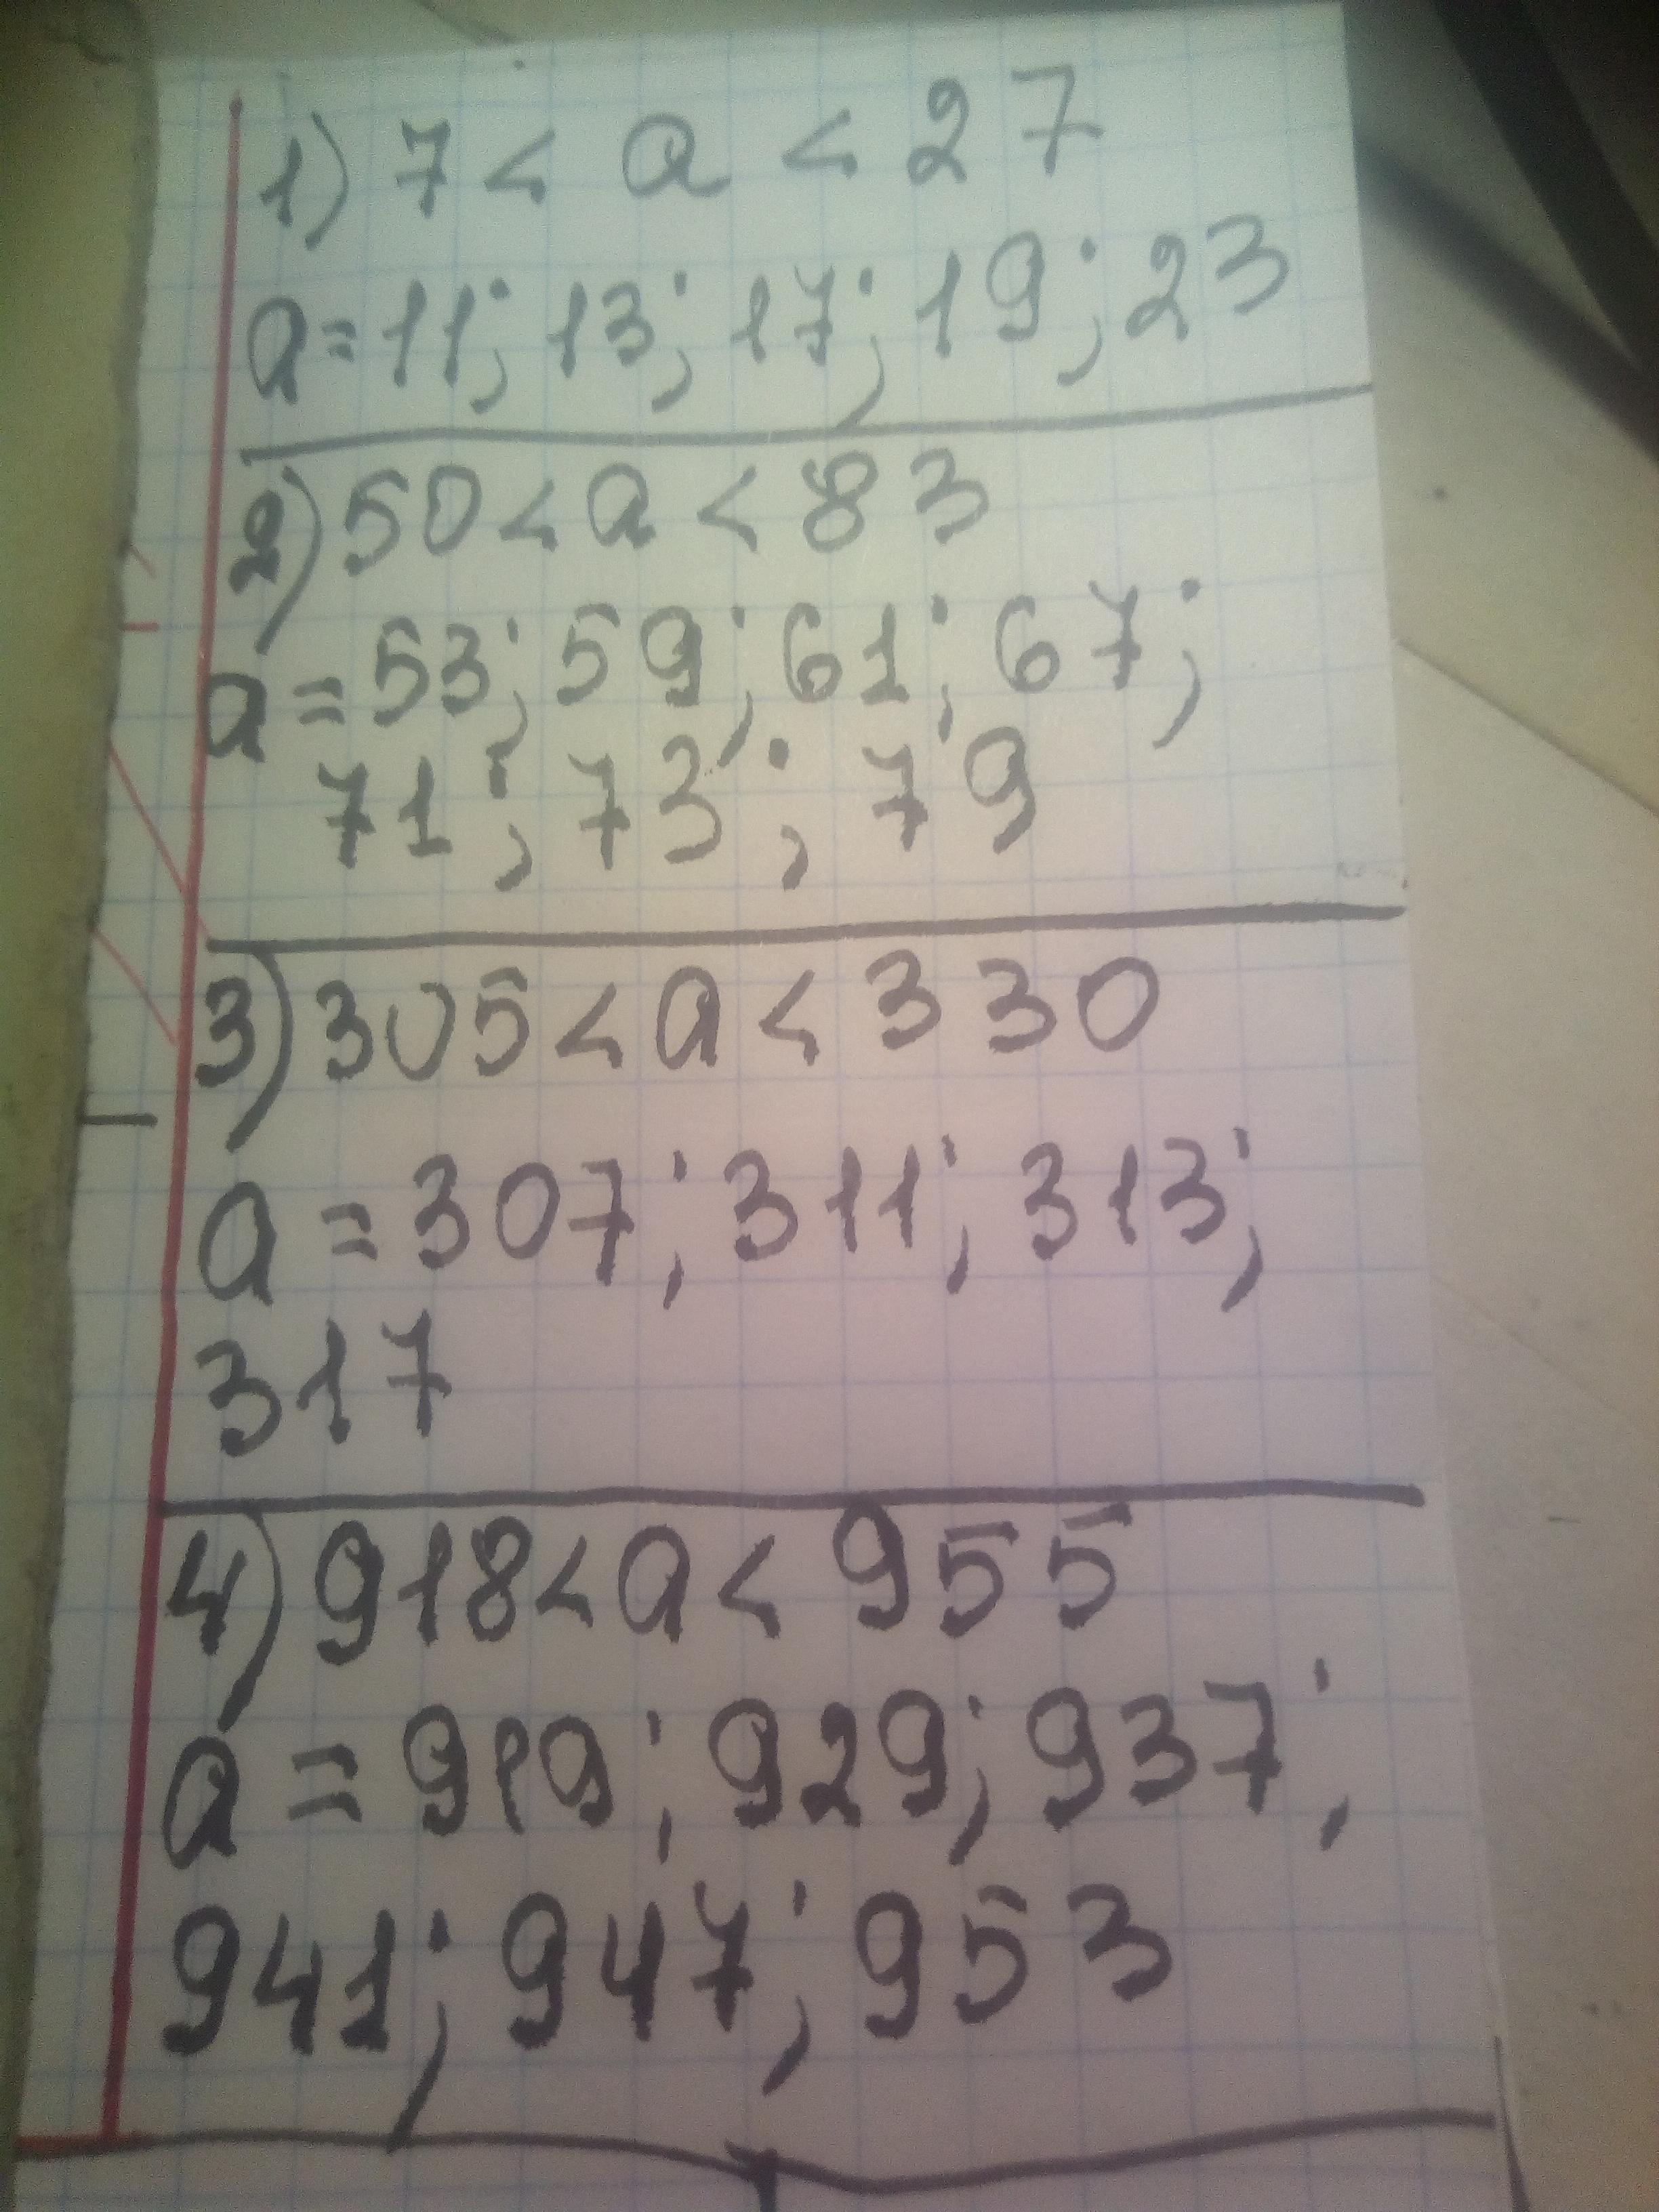 1) 7 < a < 27
a = 11; 13; 17; 19; 23
2) 50 < a < 83
a = 53; 59; 61; 67;
71; 73; 79
3) 305 < a < 330
a = 307; 311; 313;
317
4) 918 < a < 955
a = 919; 929; 937;
941; 947; 953